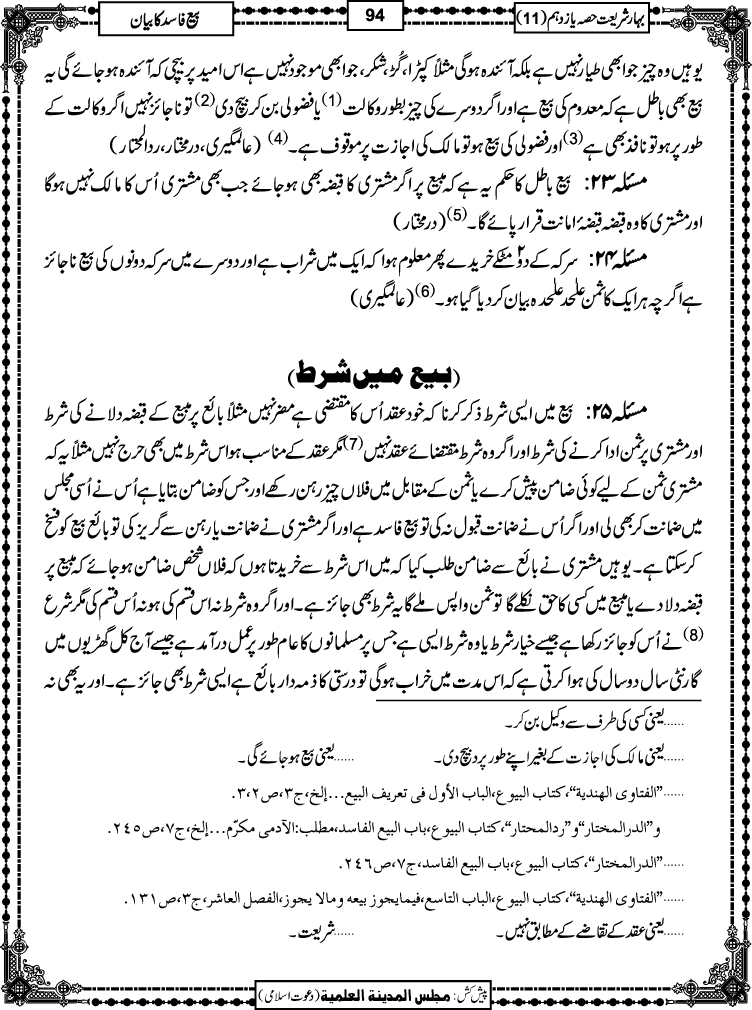 بہار شریعت حصہ یازدہم (11)
94
بیع فاسد کا بیان
یوہیں وہ چیز جو ابھی طیار نہیں ہے بلکہ آئندہ ہوگی مثلاً کپڑا، گُڑ، شکر، جو ابھی موجود نہیں ہے اس امید پر بیچی کہ آئندہ ہو جائے گی یہ
بیع بھی باطل ہے کہ معدوم کی بیع ہے اور اگر دوسرے کی چیز بطور وکالت (1) یا فضولی بن کر بیچ دی (2) تو ناجائز نہیں اگر وکالت کے
طور پر ہو تو نافذ بھی ہے (3) اور فضولی کی بیع ہو تو مالک کی اجازت پر موقوف ہے۔ (4) (عالمگیری، درمختار، ردالمحتار)
مسئلہ ۲۳: بیع باطل کا حکم یہ ہے کہ مبیع پر اگر مشتری کا قبضہ بھی ہو جائے جب بھی مشتری اُس کا مالک نہیں ہوگا
اور مشتری کا وہ قبضہ قبضۂ امانت قرار پائے گا۔ (5) (درمختار)
مسئلہ ۲۴: سرکہ کے دو ۲ مٹکے خریدے پھر معلوم ہوا کہ ایک میں شراب ہے اور دوسرے میں سرکہ دونوں کی بیع ناجائز
ہے اگرچہ ہر ایک کا ثمن علٰحدہ علٰحدہ بیان کر دیا گیا ہو۔ (6) (عالمگیری)
(بیع میں شرط)
مسئلہ ۲۵: بیع میں ایسی شرط ذکر کرنا کہ خود عقد اُس کا مقتضی ہے مضر نہیں مثلاً بائع پر مبیع کے قبضہ دلانے کی شرط
اور مشتری پر ثمن ادا کرنے کی شرط اور اگر وہ شرط مقتضائے عقد نہیں (7) مگر عقد کے مناسب ہو اس شرط میں بھی حرج نہیں مثلاً یہ کہ
مشتری ثمن کے لیے کوئی ضامن پیش کرے یا ثمن کے مقابل میں فلاں چیز رہن رکھے اور جس کو ضامن بتایا ہے اُس نے اُسی مجلس
میں ضمانت کر بھی لی اور اگر اُس نے ضمانت قبول نہ کی تو بیع فاسد ہے اور اگر مشتری نے ضمانت یا رہن سے گریز کی تو بائع بیع کو فسخ
کر سکتا ہے۔ یوہیں مشتری نے بائع سے ضامن طلب کیا کہ میں اس شرط سے خریدتا ہوں کہ فلاں شخص ضامن ہو جائے کہ مبیع پر
قبضہ دلا دے یا مبیع میں کسی کا حق نکلے گا تو ثمن واپس ملے گا یہ شرط بھی جائز ہے۔ اور اگر وہ شرط نہ اس قسم کی ہو نہ اُس قسم کی مگر شرع
(8) نے اُس کو جائز رکھا ہے جیسے خیار شرط یا وہ شرط ایسی ہے جس پر مسلمانوں کا عام طور پر عمل درآمد ہے جیسے آج کل گھڑیوں میں
گارنٹی سال دو سال کی ہوا کرتی ہے کہ اس مدت میں خراب ہوگی تو درستی کا ذمہ دار بائع ہے ایسی شرط بھی جائز ہے۔ اور یہ بھی نہ
......یعنی کسی کی طرف سے وکیل بن کر۔
......یعنی مالک کی اجازت کے بغیر اپنے طور پر بیچ دی۔ ......یعنی بیع ہو جائے گی۔
......"الفتاوی الھندیة"،کتاب البیوع،الباب الأول فی تعریف البیع...إلخ،ج۳،ص۲،۳.
و"الدرالمختار"و"ردالمحتار"،کتاب البیوع،باب البیع الفاسد،مطلب:الآدمی مکرّم...إلخ،ج۷،ص۲٤٥.
......"الدرالمختار"،کتاب البیوع،باب البیع الفاسد،ج۷،ص۲٤٦.
......"الفتاوی الھندیة"،کتاب البیوع،الباب التاسع،فیمایجوز بیعه ومالا یجوز،الفصل العاشر،ج۳،ص۱۳۱.
......یعنی عقد کے تقاضے کے مطابق نہیں۔ ......شریعت۔
پیش کش: مجلس المدینة العلمیة (دعوت اسلامی)